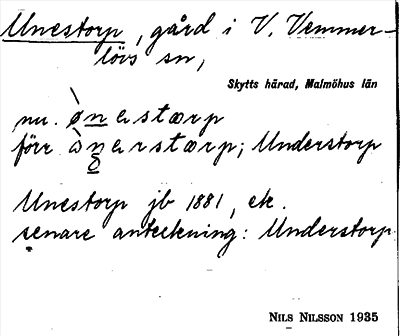 Unestorp, gård i V. Vemmer-
lövs sn,
Skytts härad, Malmöhus län
nu. ò̱nestærp
förr ònderstærp; Understorp
Unestorp jb 1881, etc.
senare anteckning: Understorp
NILS NILSSON 1935